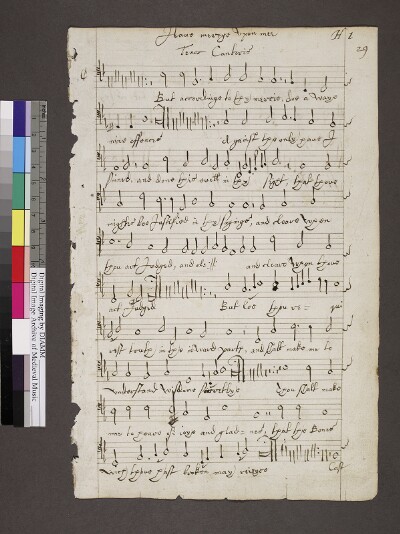 Haue mercye upon mee
H 1
29
Tenor Cantoris
But according to thy mercie, doe away
mine offences against thee only haue I
sinned, and done this euill in thy syght, that thou
mightest bee Justified in thy sayings, and cleare upon
thou art Judged, and and cleare upon thou
art Judged But loe thou re= qui
rest truth in the inward party, and shalt make me to
understand wisdome secretlye Thou shalt make
me to heare of ioye and glad= nes, that the Bones
which thou hast broken may reioyce Cast
Digital Imaging by DIAMM
Digital Image Archive of Medieval Music